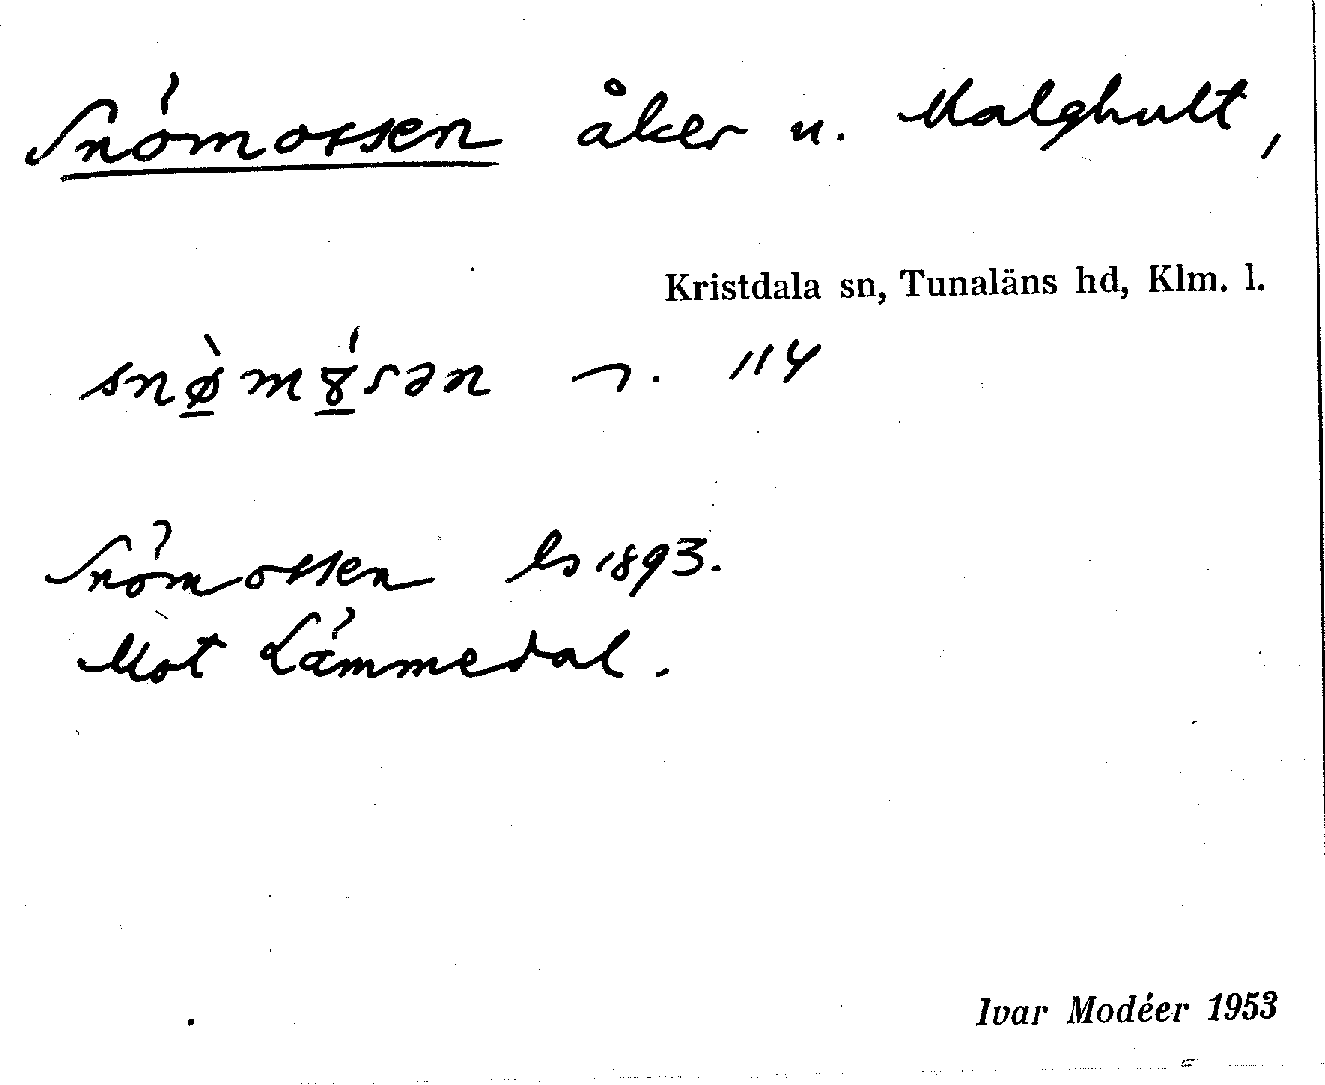 Snömossen åker u. Malghult,
Kristdala sn, Tunaläns hd, Klm. l.
snø̀mɤ́sən 114
Snömossen ls 1893.
Mot Lämmedal.
Ivar Modéer 1953